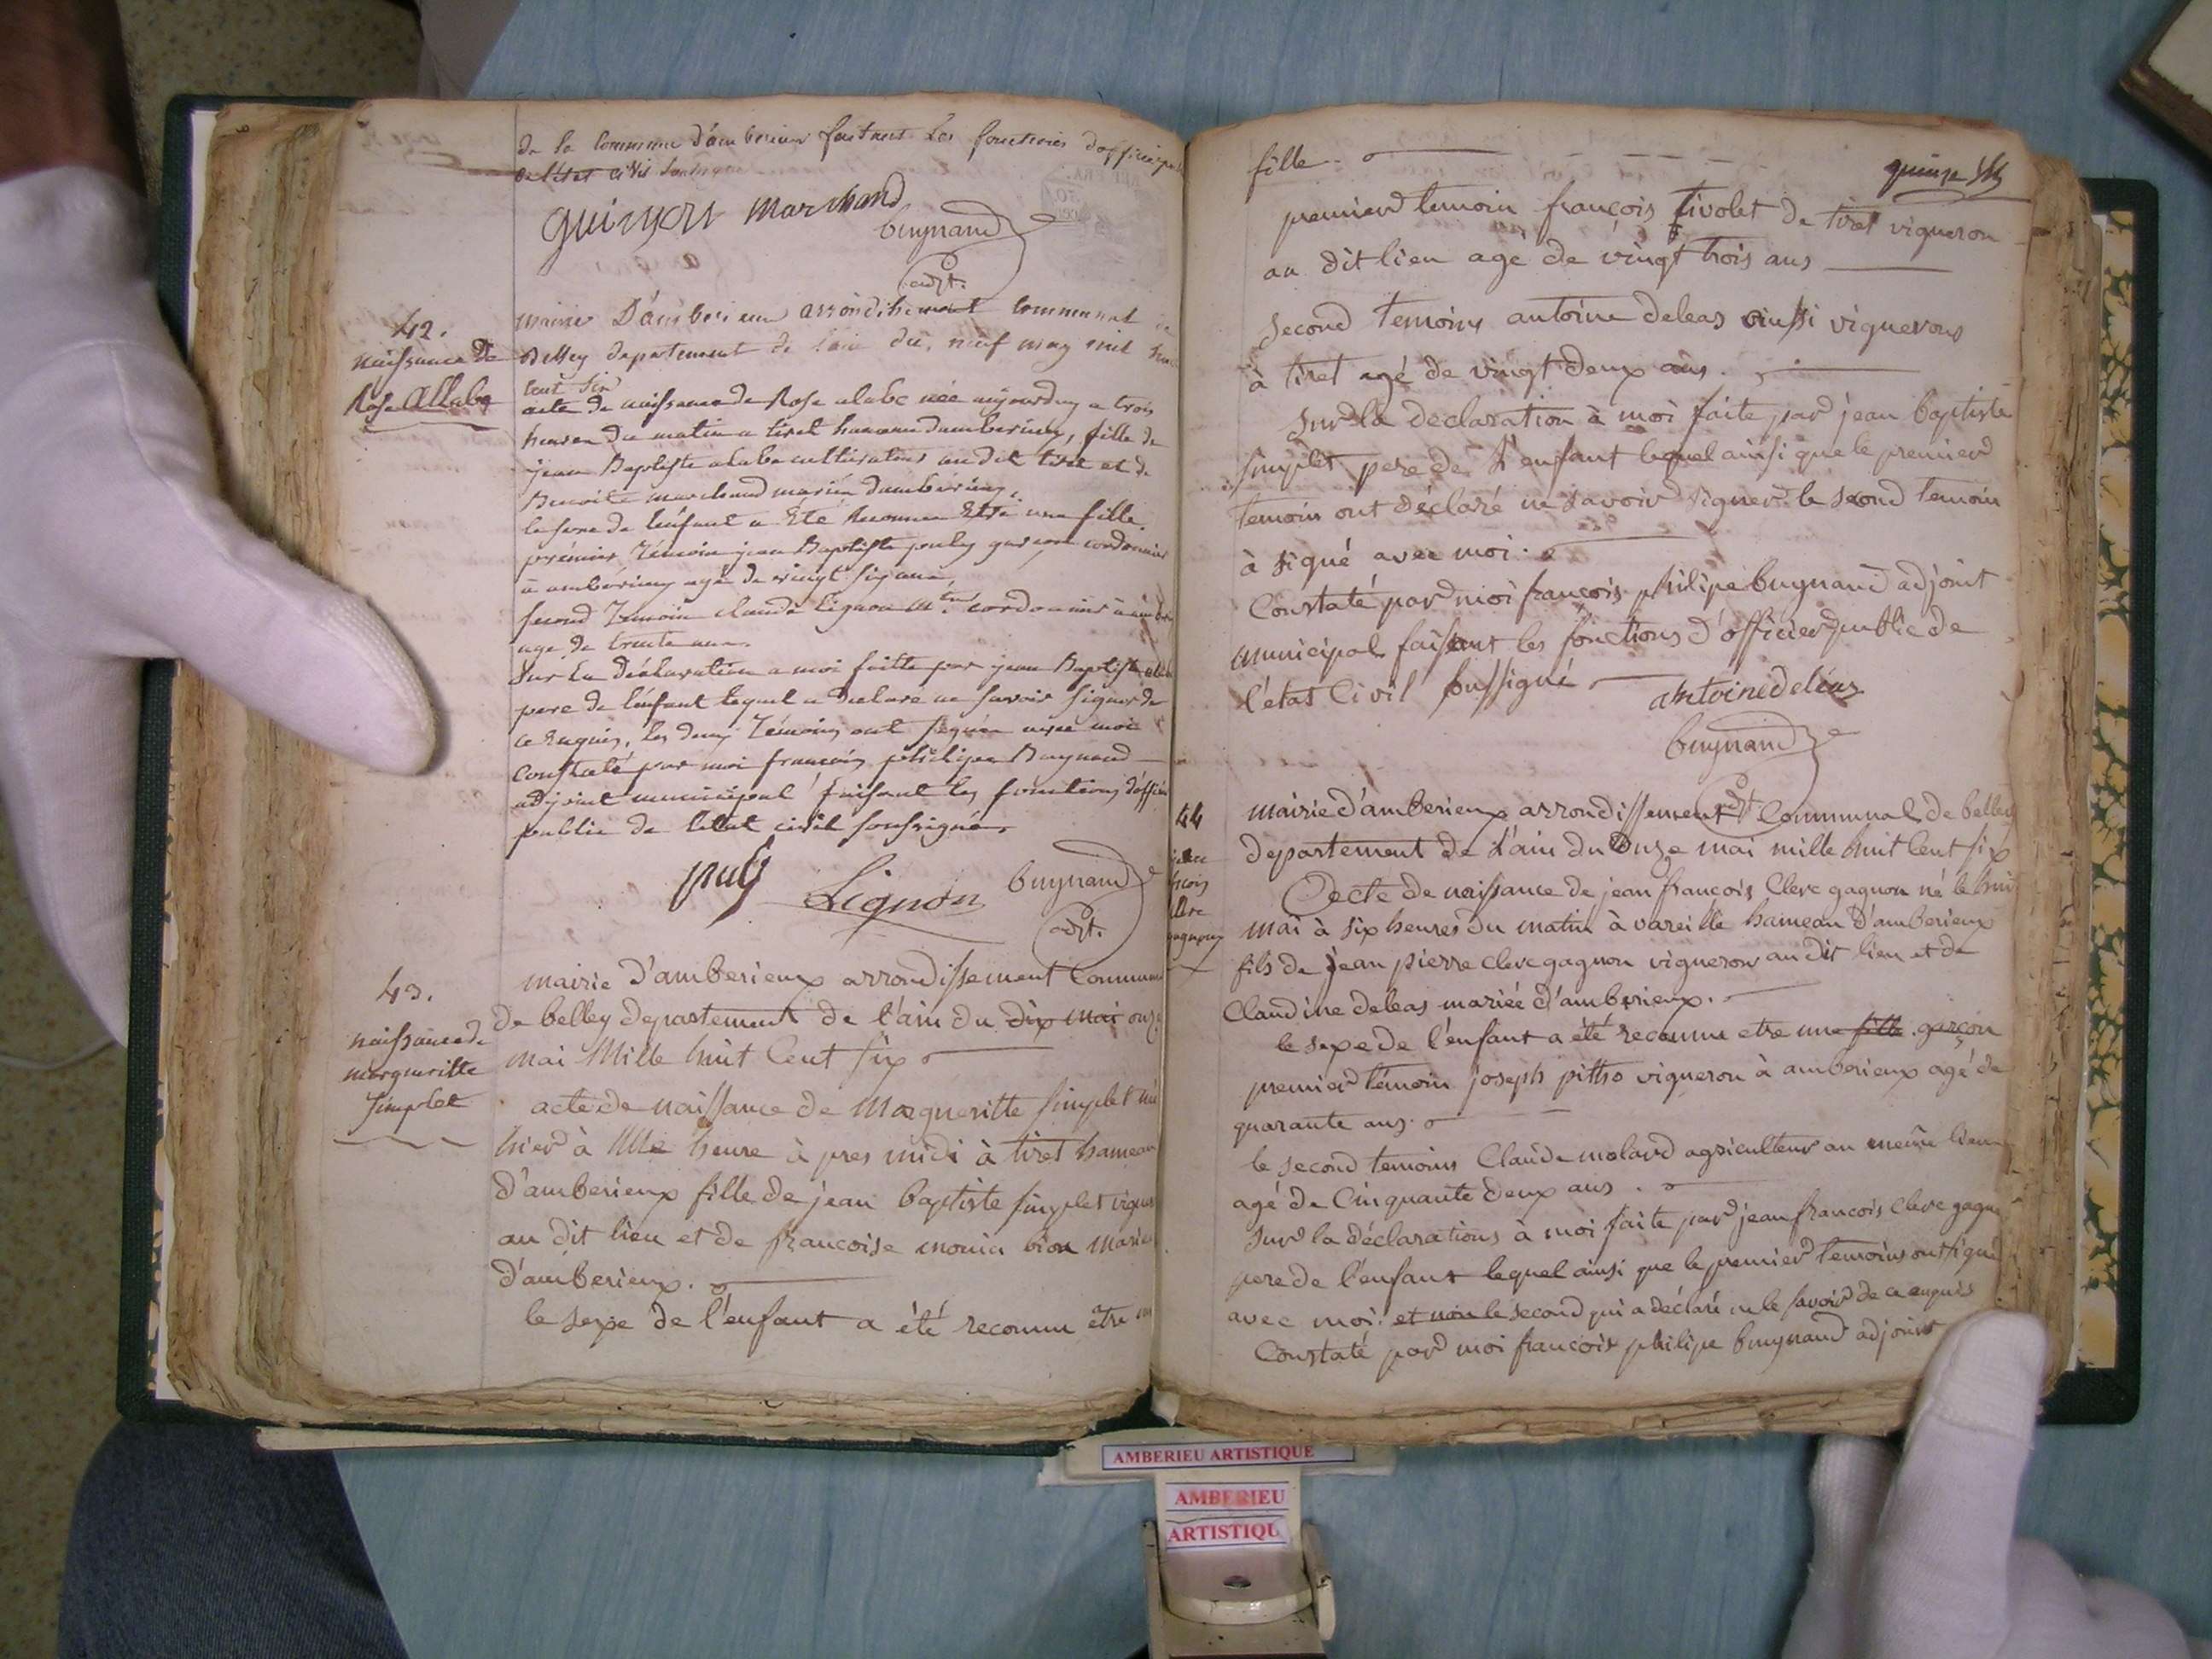 de la Commune d'amberieux faisant les fonctions d'officier
de l'état civil
guinson marchand
bugnand
adjt.
42.
naissance de
Rose Allabe
mairie D'amberieux arrondissement communal de
Belley departement de l'ain du neuf may mil huit
Cent Six
acte de naissance de Rose alabe née aujourduy a trois
heures du matin a tiret hameau damberieux, fille de
jean Baptiste alabe cultivateur au dit tiret et de
Benoite marchand mariés damberieux,
le sexe de l'enfant a été Reconnu Etre une fille.
premier Témoin jean Baptiste puly garcon cordonnier
a amberieux agé de vingt six ans,
second Témoin claude Lignon cordonnier
age de trente ans.
Sur la déclaration a moi faitte par jean Baptiste
pere de l'enfant lequel a declaré ne savoir signer de
ce Enquis, les deux Témoins ont signés avec moi
Constaté par moi françois philipe Bugnand
adjoint municipal faisant les fonctions d'officier
public de l'etat civil soussigné
puly Lignon bugnand
adjt.
43.
naissance de
margueritte
simplet
mairie d'amberieux arrondissement Commun
de belley departement de l'ain du dix mai onze
mai Mille huit Cent six
acte de naissance de Margueritte simplet née
hier à une heure à pres midi à tiret hameau
d'amberieux fille de jean baptiste simplet
au dit lieu et de françoise
d'amberieux.
le sexe de l'enfant a été reconnu être
fille
quinze
premier temoin françois tivolet de tiret vigneron
au dit lieu agé de vingt trois ans
second temoins antoine deleas aussi vignerons
à tiret agé de vingt deux ans.
sur la déclaration à moi faite par jean baptiste
simplet pere de l'enfant lequel ainsi que le premier
temoin ont déclaré ne savoir signer le second temoin
à signé avec moi.
Constaté par moi françois philipe bugnand adjoint
municipal faisant les fonctions d'officier public de
l'état Civil soussigné
antoine deleas
bugnand
adjt
44
gagnon
mairie d'amberieux arrondissement Communal de belley
departement de l'ain du onze mai mille huit Cent six
Acte de naissance de jean françois Clerc gagnon né le huit
mai à six heures du matin à vareille hameau d'amberieux
fils de jean pierre clerc gagnon vigneron au dit lieu et de
Claudine deleas mariée d'amberieux.
le sexe de l'enfant a été reconnu etre une fille garçon
premier témoin joseph pittio vigneron à amberieux agé de
quarante ans.
le second temoins Claude molard agriculteur au meme lieu
agé de Cinquante deux ans.
sur la déclarations à moi faite par jean francois Clerc
pere de l'enfant lequel ainsi que le premier temoins ont signé
avec moi. et non le second qui a déclaré ne le savoir de ce enquis
Constaté par moi francois philipe bugnand adjoint
AMBERIEU ARTISTIQUE
AMBERIEU
ARTISTIQU